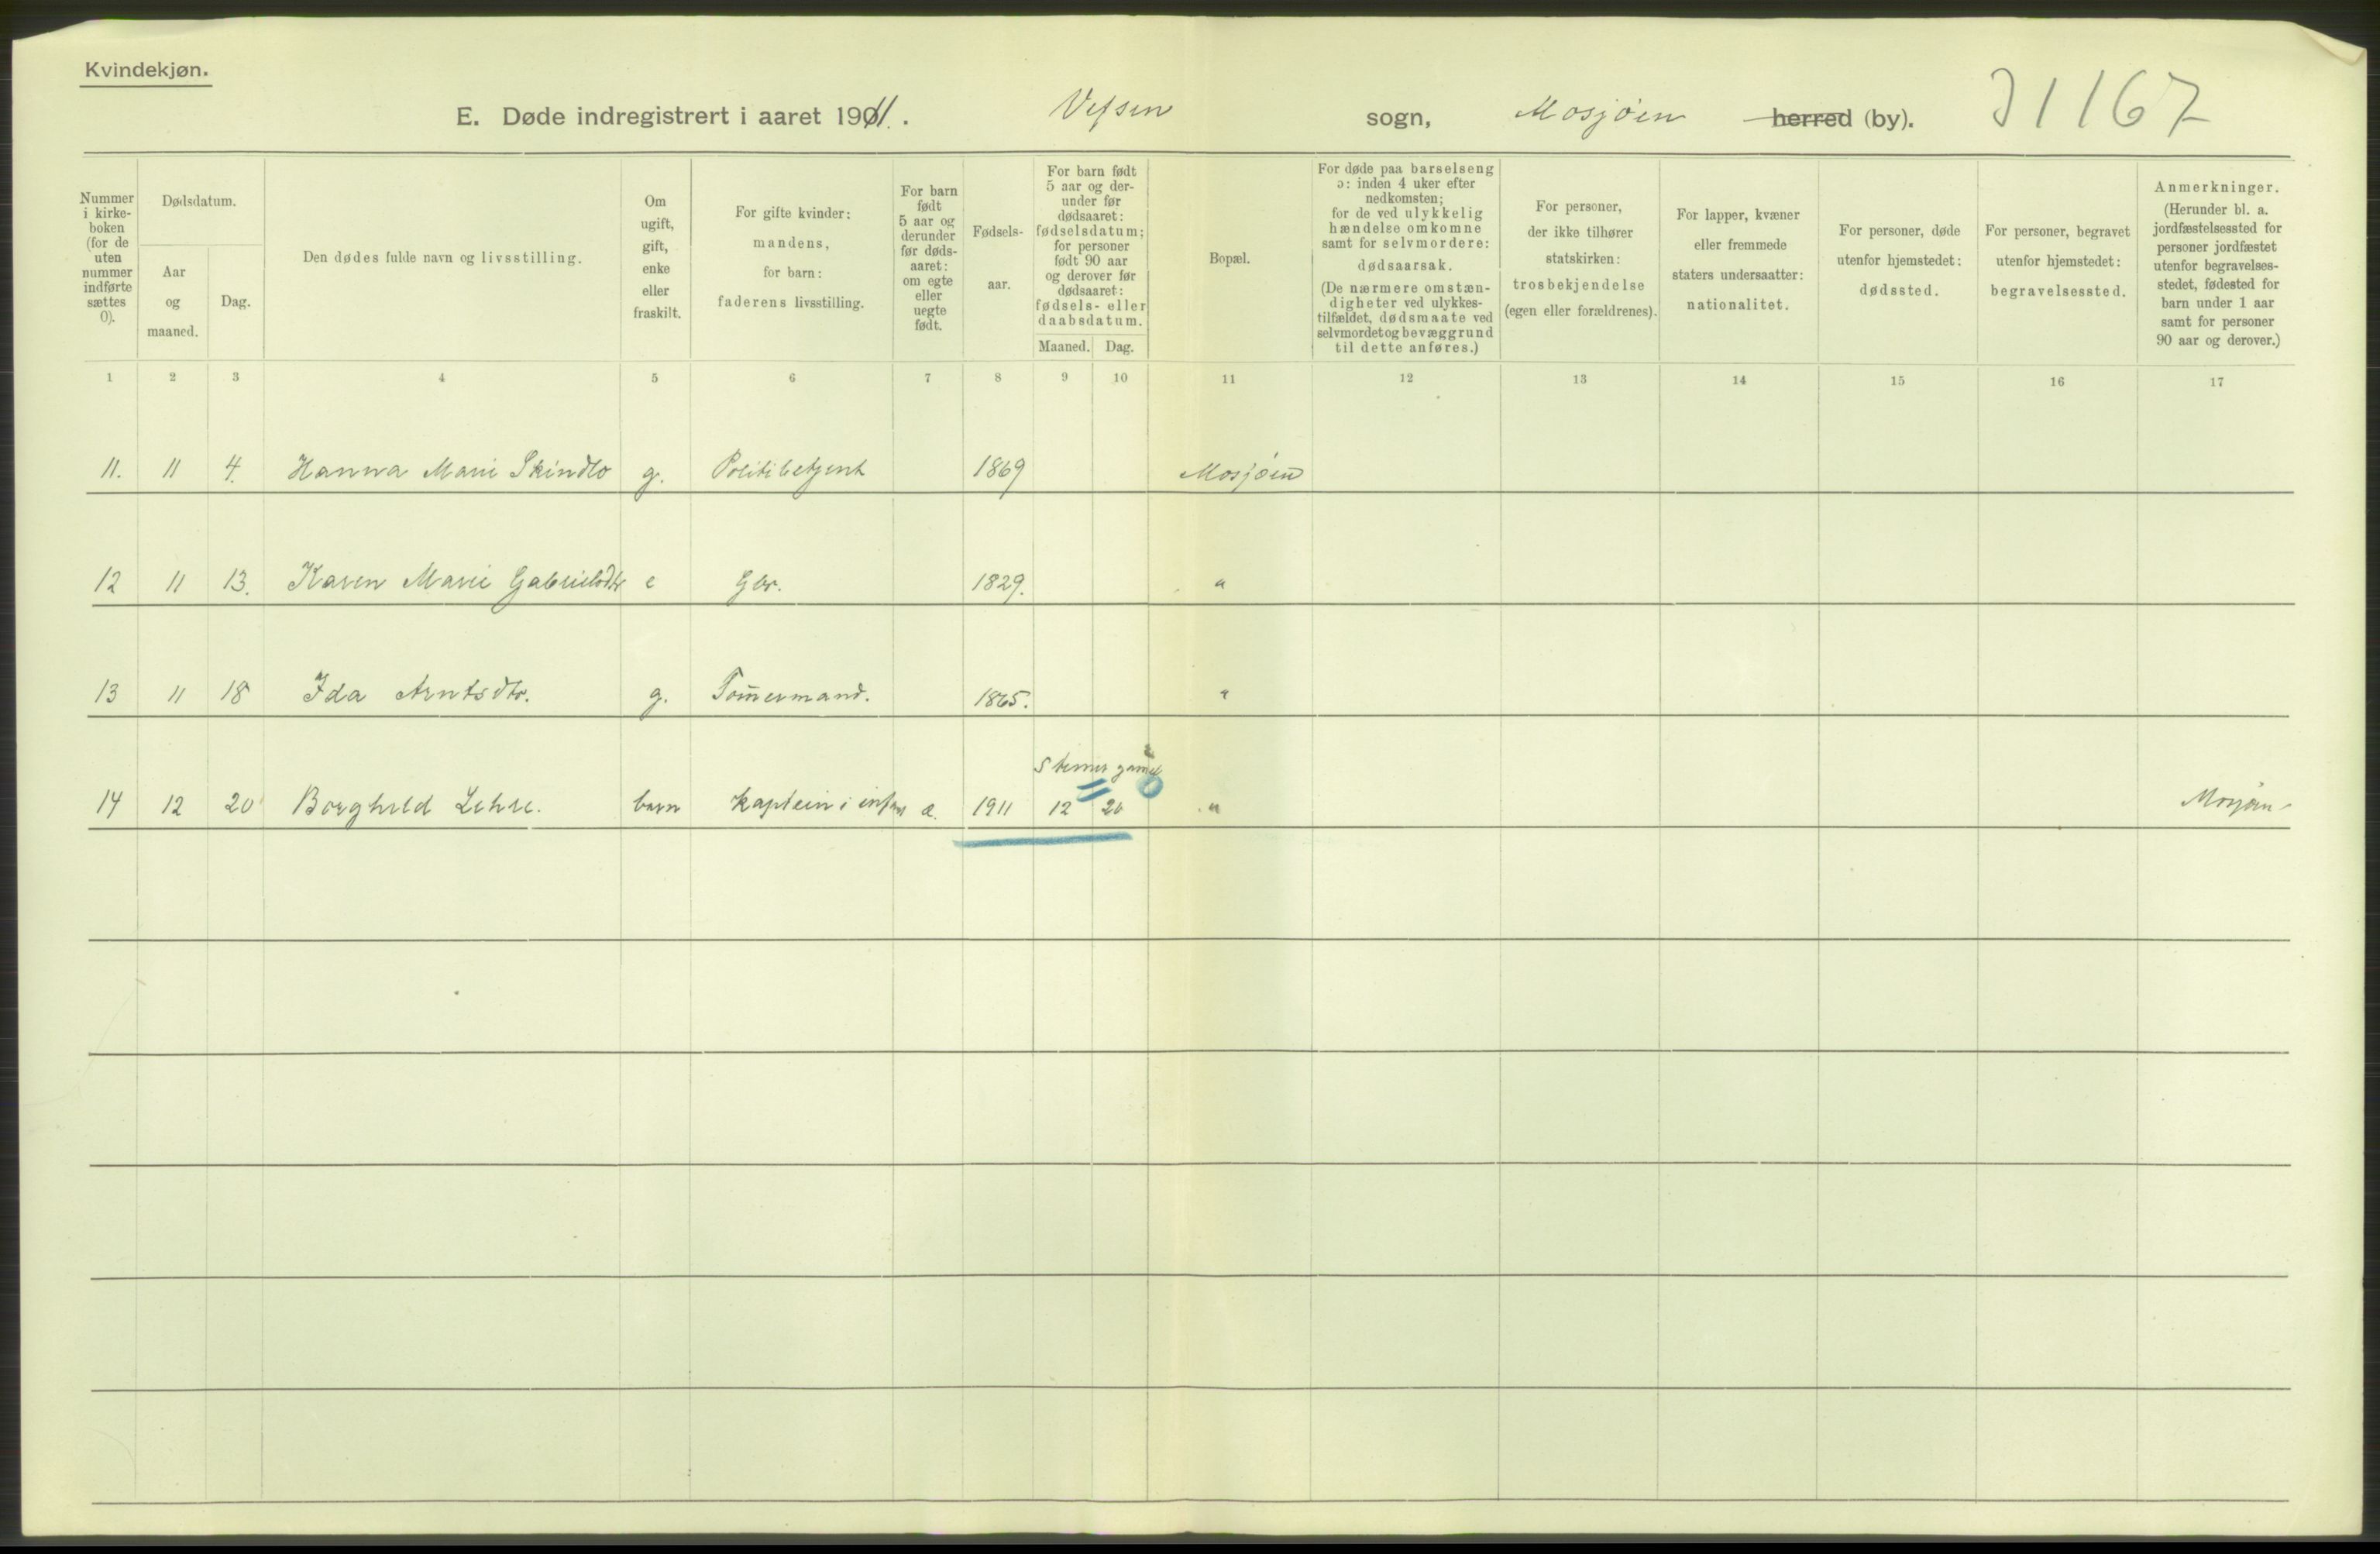 Kvindekjøn.
E. Døde indregistrert i aaret 1911. Vefsen sogn, Mosjøen herred (by). J1167
Nummer i kirke- boken (for de uten nummer indførte sættes 0).
Dødsdatum.
Aar og maaned.
Dag.
Den dødes fulde navn og livsstilling.
Om ugift, gift, enke eller fraskilt.
For gifte kvinder: mandens, for barn: faderens livsstilling.
For barn født 5 aar og derunder før døds- aaret: om egte eller uegte født.
Fødsels- aar.
For barn født 5 aar og der- under før dødsaaret: fødselsdatum; for personer født 90 aar og derover før dødsaaret: fødsels- eller daabsdatum.
Maaned. Dag.
Bopæl.
For døde paa barselseng ɔ: inden 4 uker efter nedkomsten; for de ved ulykkelig hændelse omkomne samt for selvmordere: dødsaarsak. (De nærmere omstæn- digheter ved ulykkes- tilfældet, dødsmaate ved selvmordet og bevæggrund til dette anføres.)
For personer, der ikke tilhører statskirken: trosbekjendelse (egen eller forældrenes).
For lapper, kvæner eller fremmede staters undersaatter: nationalitet.
For personer, døde utenfor hjemstedet: dødssted.
For personer, begravet utenfor hjemstedet: begravelsessted.
Anmerkninger. (Herunder bl. a. jordfæstelsessted for personer jordfæstet utenfor begravelses- stedet, fødested for barn under 1 aar samt for personer 90 aar og derover.)
1 2 3 4 5 6 7 8 9 10 11 12 13 14 15 16 17
11. 11 4. Hanna Marie Skindlo g. Politibetjent 1869 Mosjøen
12 11 13. Karen Marie Gabrielsdtr e Gbr. 1829. "
13 11 18 Ida Arntsdtr. g. Tømermand. 1865. "
5 timer gamel
14 12 20 Borghild Lehre. barn kaptein i infant æ. 1911 12 20 " Mosjøen